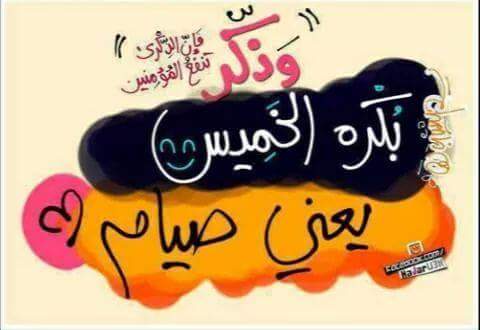 " وَذَكِّرْ
فَإِنَّ الذِّكْرَىٰ
تَنْفَعُ الْمُؤْمِنِين "
بُكْره الخَمِيس
يعني صيام
facebook.com/